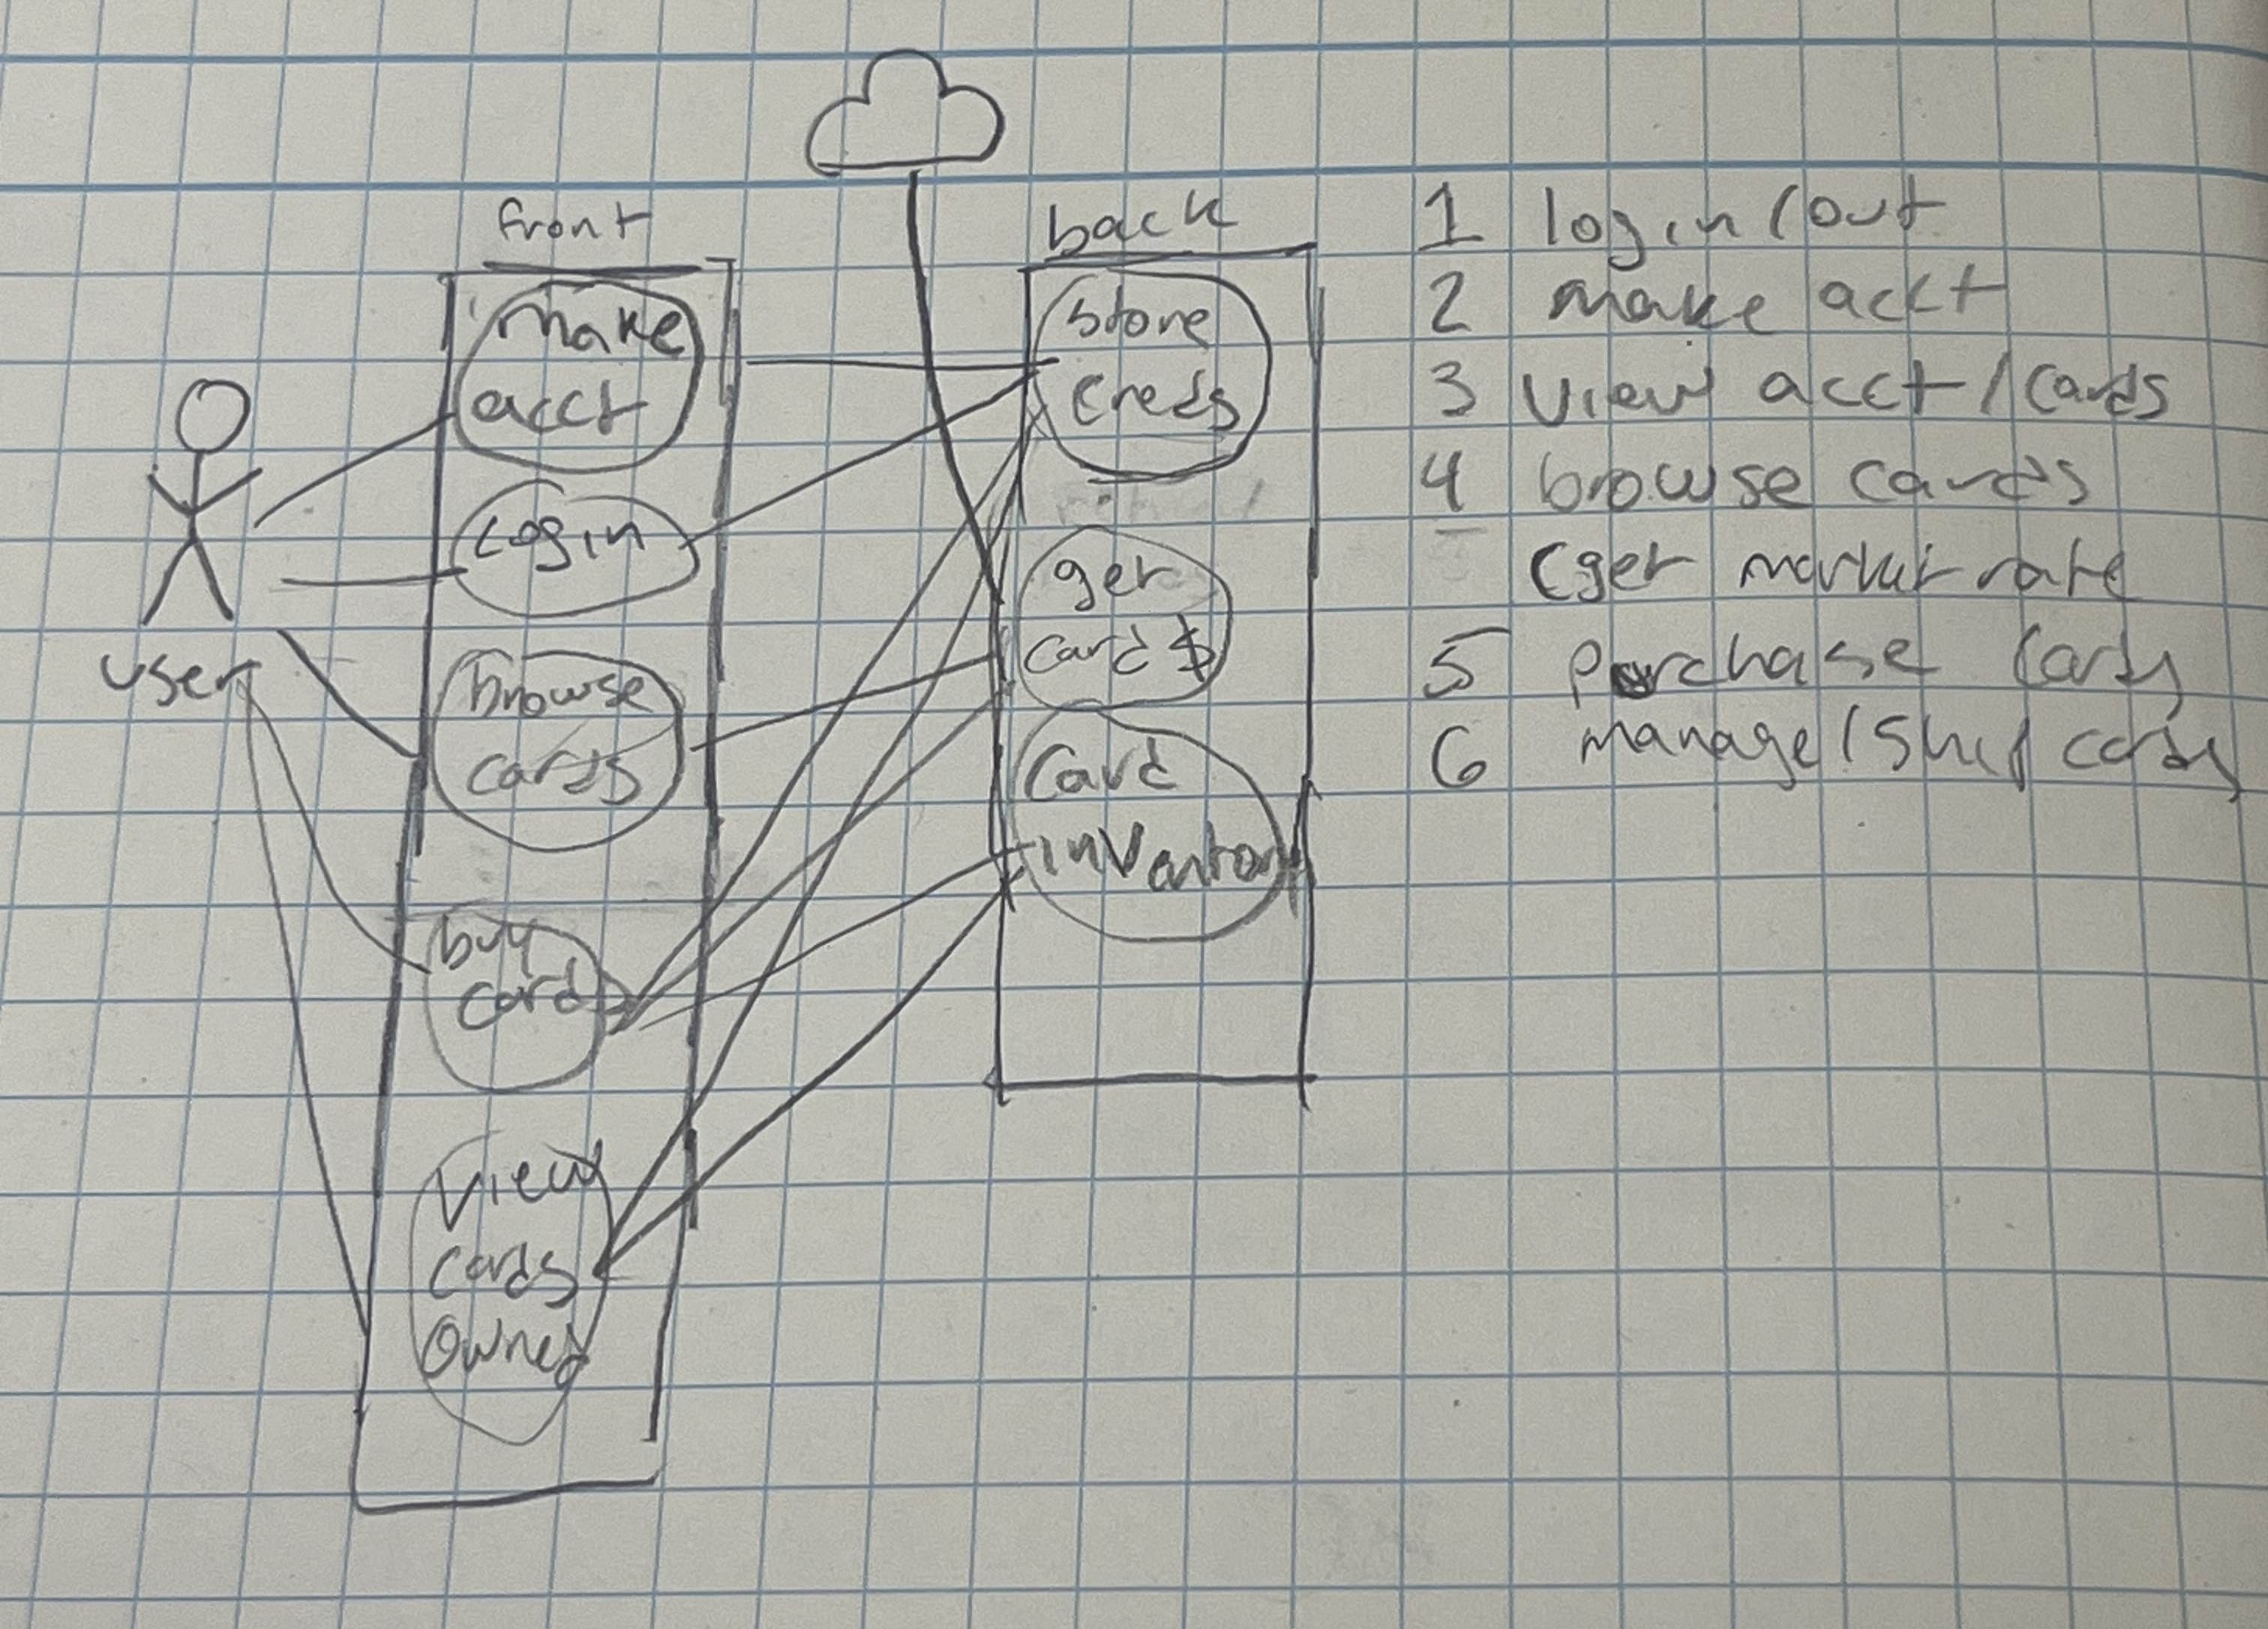 front
make
acct
login
browse
cards
buy
card
view
cards
owned
user
back
store
creds
get
card $
card
inventory
1 login/out
2 make acct
3 view acct/cards
4 browse cards
(get market rate
5 purchase cards
6 manage/ship cards